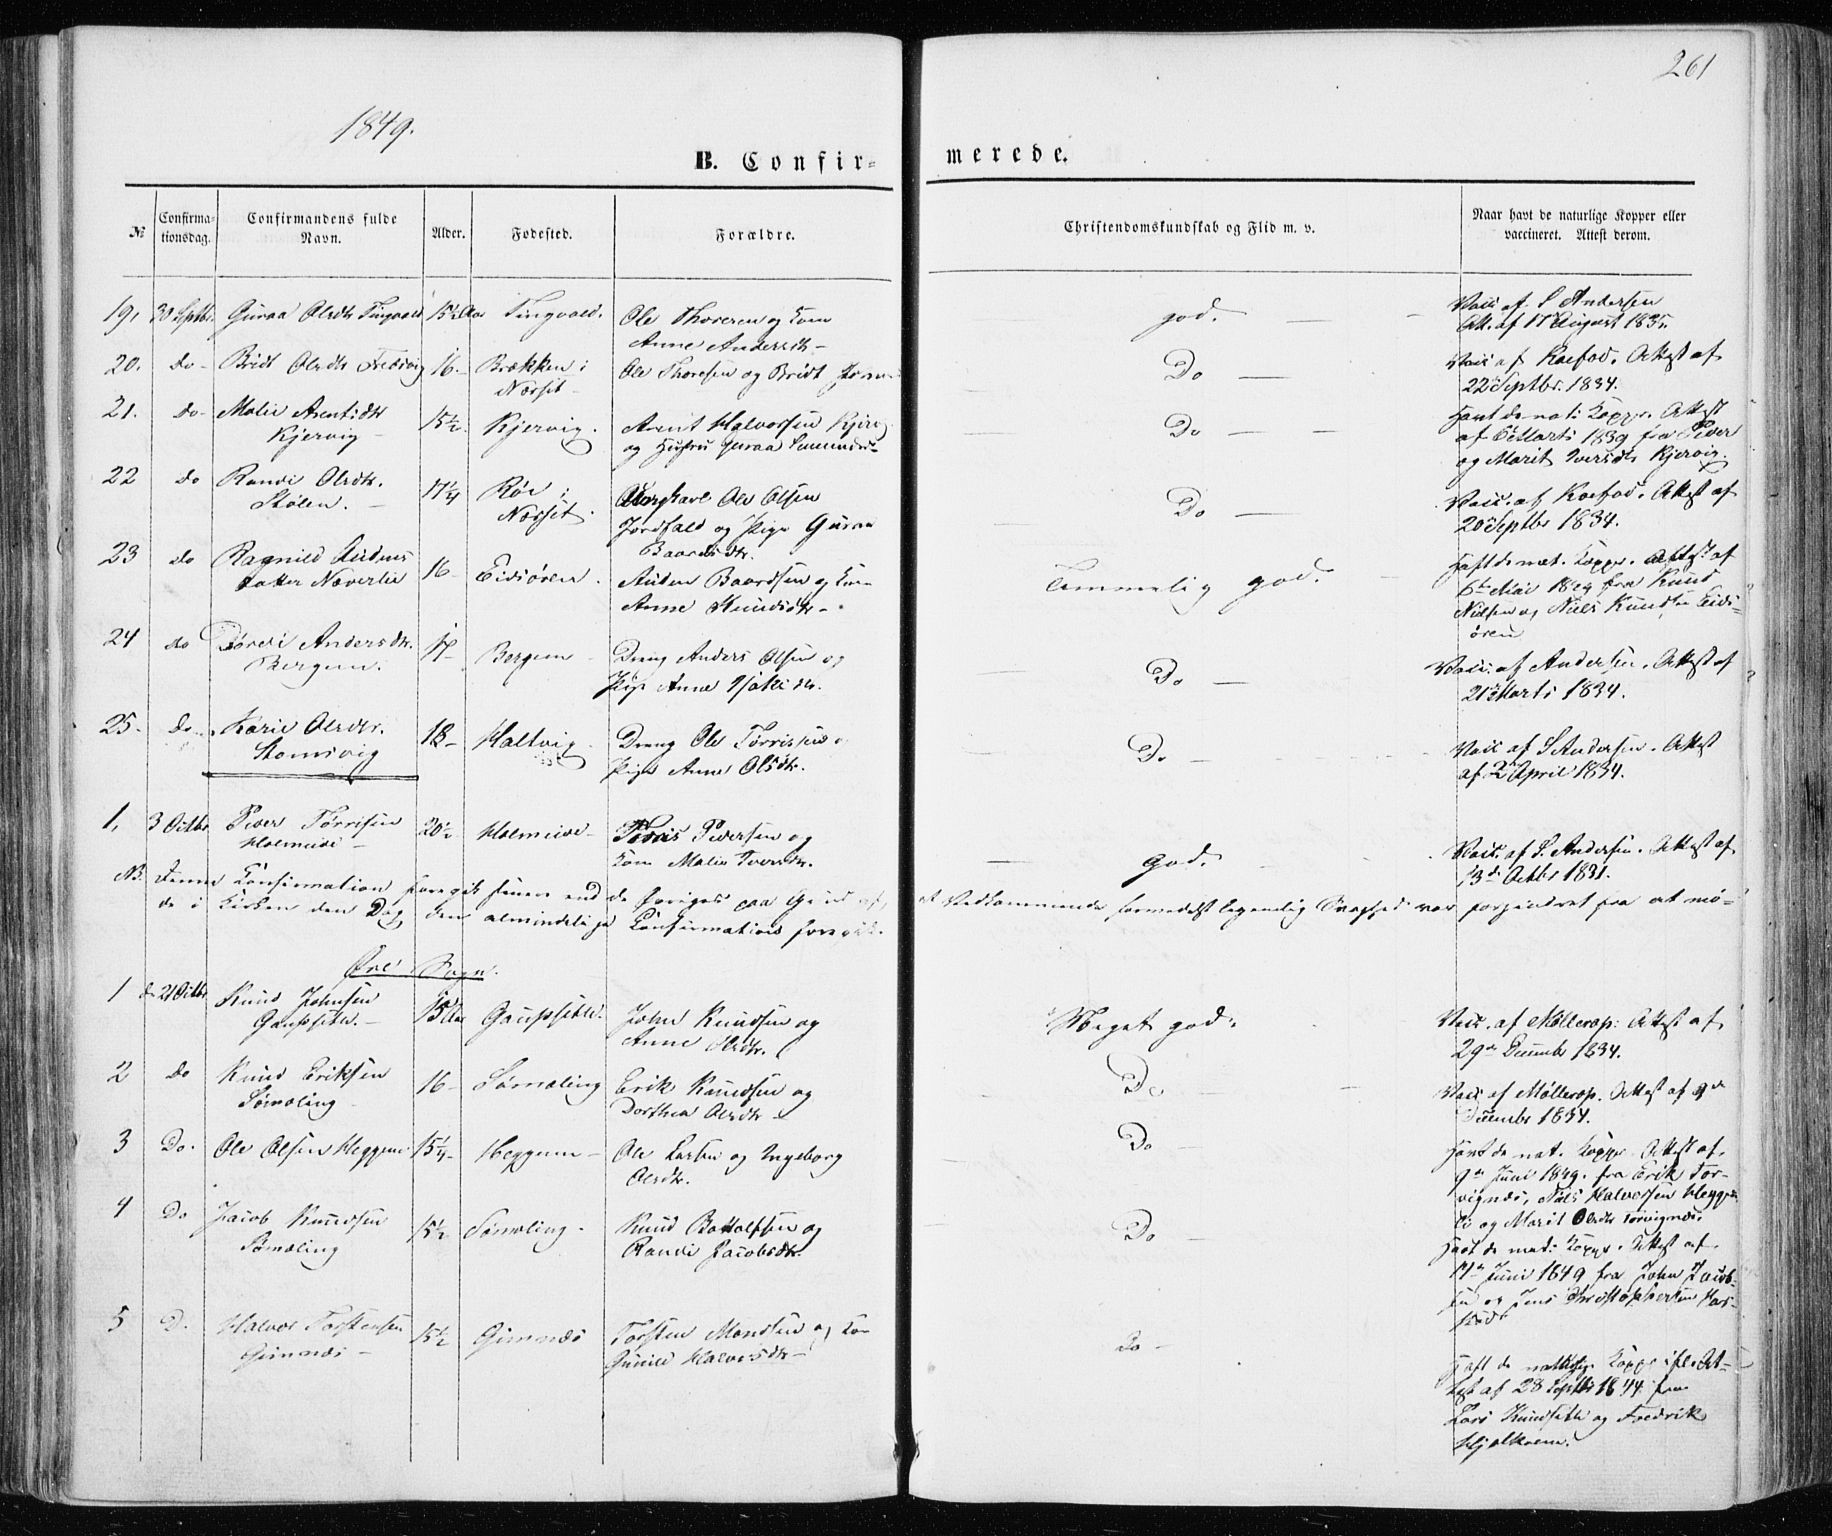 261
1849.
B. Confir-
merede.
№
Confirma-
tionsdag.
Confirmandens fulde
Navn.
Alder.
Fødested.
Forældre.
Christendomskundskab og Flid m. v.
Naar havt de naturlige Kopper eller
vaccineret. Attest derom.
19, 30 Septbr. Guraa Olsdtr Tingvold 15½ Aar Tingvold. Ole Thoresen og Kone
Anne Andersdtr
god.
Vacc. af S Andersen
Att. af 17 August 1835.
20. do Bridt Olsdtr 16. Brækken i
Næsset
Ole Thoresen og Bridt
Do
Vacc af Koefod. Attest af
22 Septbr. 1834.
21. do Malie Arentsdtr
Kjervig
15½ Kjervig. Arent Halvorsen
og Hustru Guraa
Do
Havt de nat: Kopper. Attest
af 6 Marts 1839 fra Peder
og Marit Iversdtr Kjervig.
22 do Randi Olsdtr.
Stølen.
17¼ Røe i
Næsset.
Ungkarl Ole Olsen
Jordfald og Pige Guraa
Baardsdtr.
Do
Vacc. af Koefod. Attest af
20 Septbr 1834.
23 do Ragnild Audens
datter Naverlie
16 Eidsøren. Auden Baardsen og Kone
Anne Knudsdtr
Temmelig god.
Haft de nat. Kopper. Attest af
6te Mai 1849 fra Knud
Nielsen og Niels Knudsen Eids-
øren
24 do Andersdtr.
Bergem.
17 Bergem Dreng Anders Olsen og
Pige Anne
Do
Vacc. af Andersen. Attest af
21 Marts 1834.
25. do Karie Olsdtr.
18 Haltvig Dreng Ole Tørrissen
Pige Anne Olsdtr.
Do
Vacc af S Andersen. Attest
af 2 April 1834.
1, 3 Octbr Peder Tørrisen
Holmeide
20½ Holmeide Peder Pedersen og
Kone Malie Iversdtr.
god.
Vacc. af S. Andersen. Attest af
13de Octbr 1831.
NB. Denne Confirmation foregik senere end de Øvriges paa Grund af, at Vedkommende formedelst legemlig Svaghed var forhindret fra at mø-
de i Kirken den Dag den almindelige Confirmation foregik.
Øre Sogn.
1 d. 21 Octbr Knud Johnsen
Gaupseth.
15 Aar Gaupseth. John Knudsen og
Anne Olsdtr.
Meget god.
Vacc. af Møllerop: Attest af
29de December 1834.
2 Do Knud Eriksen
Sømoling
16 Sømoling Erik Knudsen og
Dorthea Olsdtr.
Do
Vacc af Møllerop. Attest af 9de
December 1834.
3 Do. Ole Olsen Heggem 15¼ Heggem Ole Larsen og Ingeborg
Olsdtr.
Do
Havt de nat. Kopper Attest af
9de Juni 1849. fra Erik Tor-
vignæs, Niels Halvorsen
og Marit Olsdtr Torvignæs.
4 Do Jacob Knudsen
Sømoling
15½ Sømoling. Knud Botolfsen og
Randi Jacobsdtr.
Do
Havt de nat: Kopper. Attest af
17de Juni 1849 fra John Jacob-
sen og Jens Christophersen
5 D. Halvor Torstensen
Gimnæs
15½ Gimnæs Torsten Mondsen og Kone
Gunild Halvorsdtr
Do
Haft de naturlige Kopper ifl. At-
test af 28 Septbr 1844 fra
Lars Knudseth og Fredrik